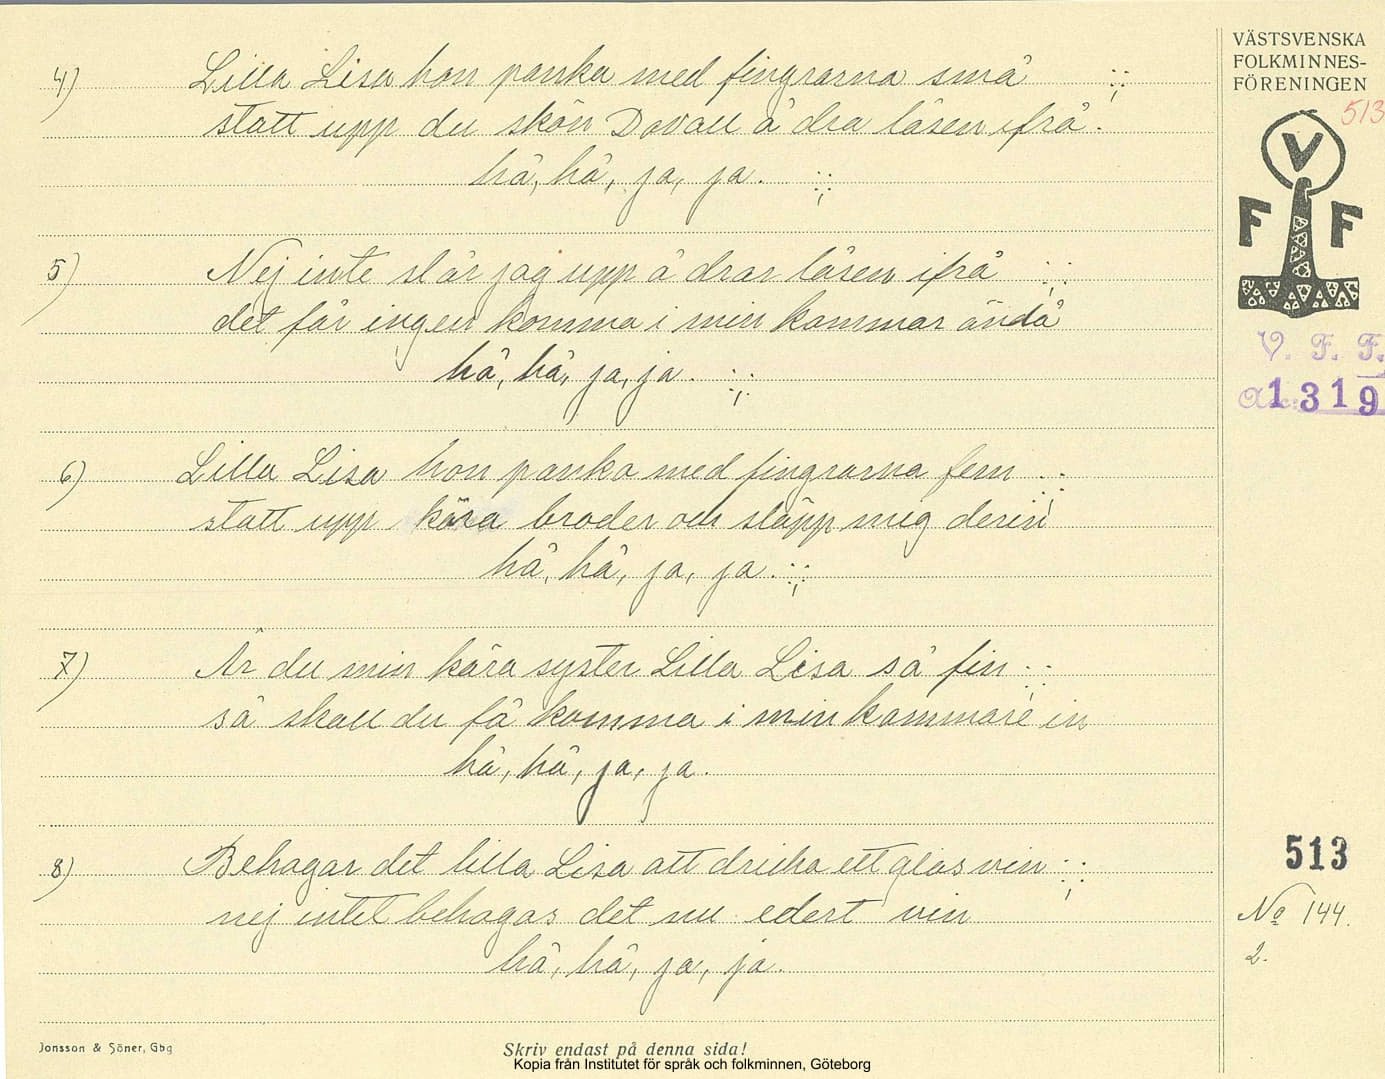 4) Lilla Lisa hon panka med fingrarna små :;:
statt upp du skön Dovall å dra låsen ifrå.
hå, hå, ja, ja. :;:
5) Nej inte slår jag upp å drar låsen ifrå :;:
det får ingen komma i min kammar ändå
hå, hå, ja, ja. :;:
6) Lilla Lisa hon panka med fingrarna fem :;:
statt upp kära broder och släpp mig derin
hå, hå, ja, ja. :;:
7) Är du min kära syster Lilla Lisa så fin :;:
så skall du få komma i min kammare in
hå, hå, ja, ja.
8) Behagar det lilla Lisa att dricka ett glas vin :;:
nej intet behagas det nu edert vin
hå, hå, ja, ja.
Jonsson & Söner, Gbg
Skriv endast på denna sida!
Kopia från Institutet för språk och folkminnen, Göteborg
VÄSTSVENSKA
FOLKMINNES-
FÖRENINGEN
513
V
F F
V. F. F.
Acc: 1319
513
No 144.
2.